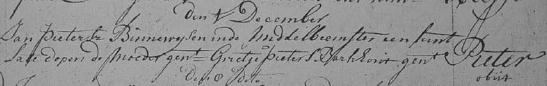 den 1 December
Jan Pieterse Binnewysen in de Middelbeemster een kint
Late dopen de Moeder gent Grietje Pieters Barkhout gent Pieter
obiit
Den 8 dito